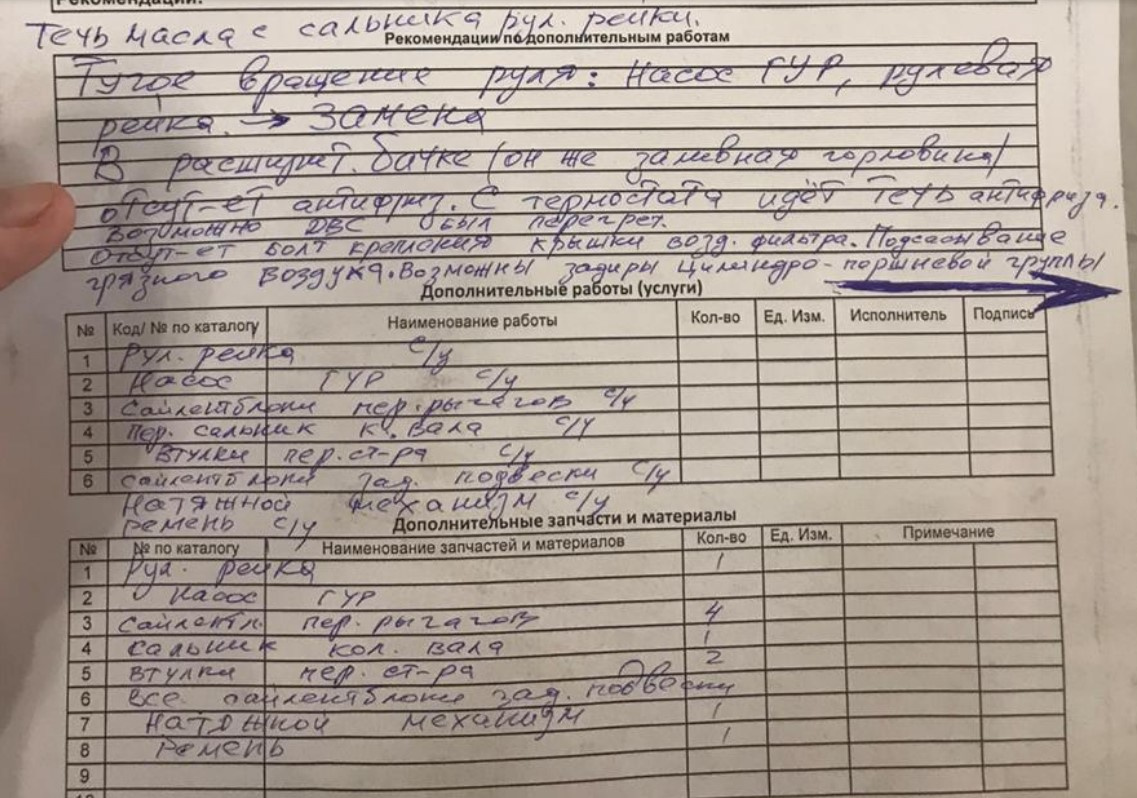 Рекомендации:
Течь масла с сальника рул. рейки.
Рекомендации по дополнительным работам
Тугое вращение руля: Насос ГУР, рулевая
рейка → Замена
В расширит. бачке (он же заливная горловина)
отсут-ет антифриз. С термостата идёт течь антифриза.
Возможно ДВС был перегрет.
Отсут-ет болт крепления крышки возд. фильтра. Подсасывание
грязного воздуха. Возможны задиры цилиндро-поршневой группы
Дополнительные работы (услуги)
№ Код/ № по каталогу Наименование работы Кол-во Ед. Изм. Исполнитель Подпись
1 Рул. рейка с/у
2 Насос ГУР с/у
3 Сайлентблоки пер. рычагов с/у
4 Пер. сальник к. вала с/у
5 Втулки пер. ст-ра с/у
6 Сайлентблоки зад. подвески с/у
Натяжной механизм с/у
Ремень с/у
Дополнительные запчасти и материалы
№ № по каталогу Наименование запчастей и материалов Кол-во Ед. Изм. Примечание
1 Рул. рейка 1
2 Насос ГУР
3 Сайлентбл. пер. рычагов 4
4 Сальник кол. вала 1
5 Втулки пер. ст-ра 2
6 Все сайлентблоки зад. подвески
7 Натяжной механизм 1
8 Ремень 1
9